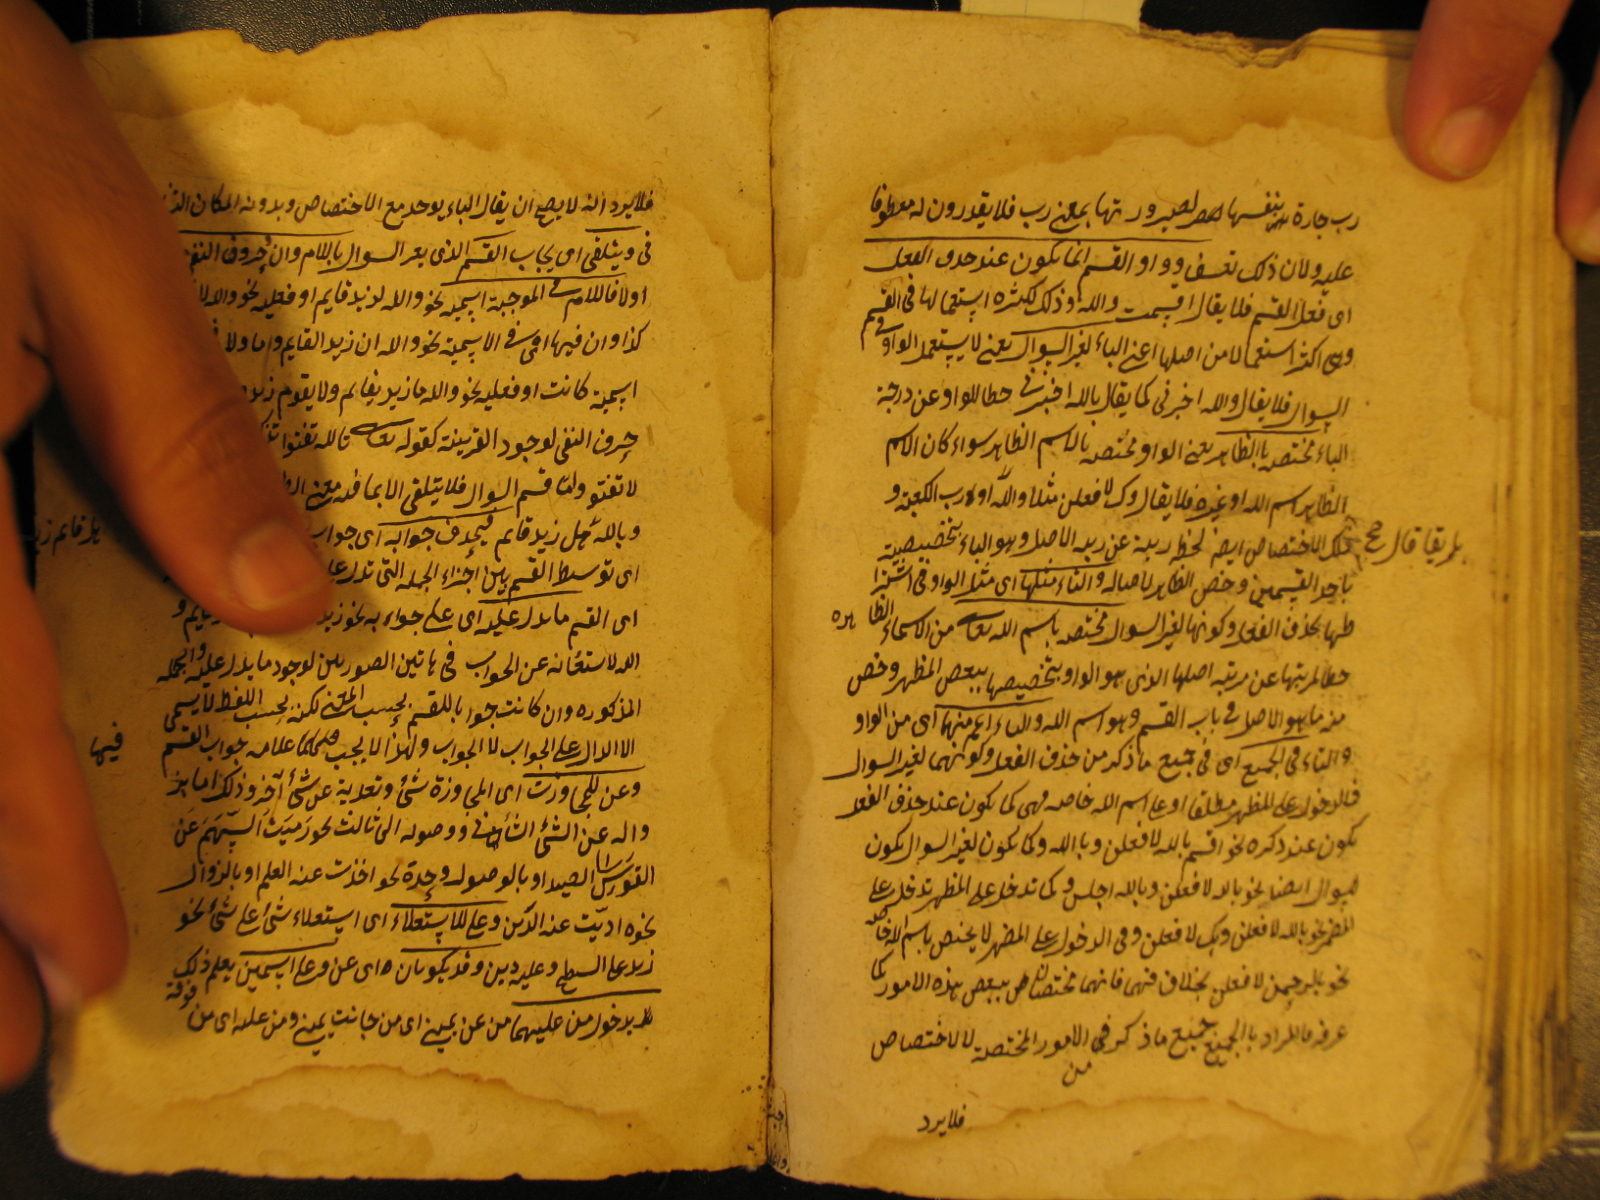 رب جارة بنفسها لصيرورتها بمعنى رب فلا يقدرون له معطوفا
عليه ولان ذلك تعسف وواو القسم انما يكون عند حذف الفعل
اى فعل القسم فلا يقال اقسمت والله وذلك لكثرة استعمالها فى القسم
وهى اكثر استعمالا من اصلها اعنى الباء لغير السوال يعنى لا يستعمل الواو فى
السوال فلا يقال والله اخبرنى كما يقال بالله اخبرنى حطا للواو عن درجة
الباء مختصة بالظاهر يعنى الواو مختصة بالاسم الظاهر سواء كان الاسم
الظاهر اسم الله او غيره فلا يقال وك لافعلن مثلا والله او ورب الكعبة و
ذلك الاختصاص ايضا لحط رتبته عن رتبة الاصل وهو الباء بتخصيصه
باحد القسمين وخص الظاهر لاصالته والتاء مثلها اى مثل الواو فى اشترا
طها بحذف الفعل وكونها لغير السوال مختصة باسم الله تعالى من الاسماء الظاهره
حطا لمرتبتها عن مرتبة اصلها الذى هو الواو بتخصيصها ببعض المظهر وخص
منه ما هو الاصل فى باب القسم وهو اسم الله والباء اعم منهما اى من الواو
والتاء فى الجميع اى فى جميع ما ذكر من حذف الفعل وكونهما لغير السوال
والدخول على المظهر مطلقا او على اسم الله خاصه فهى كما يكون عند حذف الفعل
يكون عند ذكره نحو اقسم بالله لافعلن وبالله وكما يكون لغير السوال يكون
للسوال ايضا نحو بالله لافعلن وبالله اجلس وكما تدخل على المظهر تدخل على
المضمر نحو بالله لافعلن وبك لافعلن وفى الدخول على المظهر لا يختص باسم الله خاصه
نحو بالرحمن لافعلن بخلاف فيهما فانهما مختصتان ببعض هذه الامور كما
عرفه فالمراد بالجميع جميع ما ذكر فى الامور المختصة لا الاختصاص
من
فلايرد
فلا يرد انه لا يصح ان يقال الباء يوجد مع الاختصاص وبدونه لمكان
فى ويتلقى اى يجاب القسم الذى بغير السوال باللام وان وحروف النفى
اولا فاللام فى الموجبة اسمية نحو والله لزيد قايم او فعلية نحو والله
كذا وان فيها اى فى الاسمية نحو والله ان زيد القايم وما ولا
اسمية كانت او فعلية نحو والله ما زيد بقائم ولا يقوم زيد
حرف النفى لوجود القرينة كقوله تعالى تالله تفتؤا تذكر
لا تفتو واما قسم السوال فلا يتلقى الا بما فيه معنى
وبالله هل زيد قائم ويحذف جوابه اى جواب
اى توسط القسم بين اجزاء الجملة التى تدل على
اى القسم ما يدل عليه اى على جوابه نحو زيد
الله لاستغنائه عن الجواب فى هاتين الصورتين لوجود ما يدل عليه والجملة
المذكوره وان كانت جوابا للقسم بحسب المعنى لكن بحسب اللفظ لا يسمى
الا الدال على الجواب لا الجواب ولهذا لا يجب فيها علامه جواب القسم
وعن للمجاوزة اى لمجاوزة شئ وتعدية عن شئ آخر وذلك اما بز
واله عن الشئ الثانى ووصوله الى ثالث نحو رميت السهم عن
القوس الى الصيد او بالوصول وحده نحو اخذت عنه العلم او بالزوال
نحوه اديت عنه الدين وعلى للاستعلاء اى استعلاء شئ على شئ نحو
زيد على السطح وعليه دين وقد يكونان اى عن وعلى اسمين يعلم ذلك
بدخول من عليهما من عن يمينى اى من جانب يمينى ومن عليه اى من فوقه
فيها